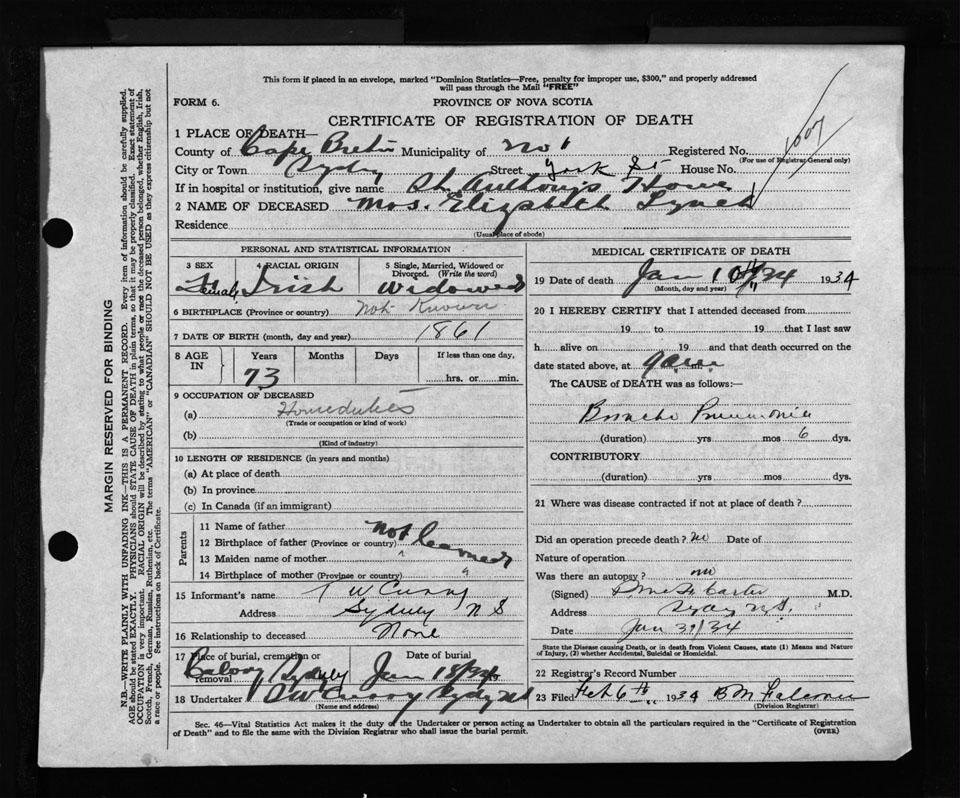 This form if placed in an envelope, marked "Dominion Statistics—Free, penalty for improper use, $300," and properly addressed
will pass through the Mail "FREE"
FORM 6. PROVINCE OF NOVA SCOTIA
CERTIFICATE OF REGISTRATION OF DEATH
1 PLACE OF DEATH—
County of Cape Breton Municipality of No 1 Registered No.
(For use of Registrar General only)
City or Town Sydney Street York St House No.
If in hospital or institution, give name St Anthony's Home
2 NAME OF DECEASED Mrs. Elizabeth Lynch
Residence
(Usual place of abode)
PERSONAL AND STATISTICAL INFORMATION
3 SEX 4 RACIAL ORIGIN 5 Single, Married, Widowed or Divorced. (Write the word)
Female Irish Widowed
6 BIRTHPLACE (Province or country) Not Known
7 DATE OF BIRTH (month, day and year) 1861
8 AGE IN Years Months Days If less than one day,
73 hrs. or min.
9 OCCUPATION OF DECEASED
(a) Homeduties
(Trade or occupation or kind of work)
(b)
(Kind of industry)
10 LENGTH OF RESIDENCE (in years and months)
(a) At place of death
(b) In province
(c) In Canada (if an immigrant)
Parents
11 Name of father Not
12 Birthplace of father (Province or country) learned
13 Maiden name of mother
14 Birthplace of mother (Province or country)
15 Informant's name T W Curry
Address Sydney N S
16 Relationship to deceased None
17 Place of burial, cremation or removal Date of burial
Sydney Jan
18 Undertaker T W Curry Sydney NS
(Name and address)
MEDICAL CERTIFICATE OF DEATH
19 Date of death Jan 10th/34 1934
(Month, day and year)
20 I HEREBY CERTIFY that I attended deceased from
19 to 19 that I last saw
h alive on 19 and that death occurred on the
date stated above, at 9 a.m.
The CAUSE of DEATH was as follows:
Broncho Pneumonia
(duration) yrs mos 6 dys.
CONTRIBUTORY
(duration) yrs mos dys.
21 Where was disease contracted if not at place of death?
Did an operation precede death? no Date of
Nature of operation
Was there an autopsy? no
(Signed) M.D.
Address Sydney N.S.
Date Jan 34
State the Disease causing Death, or in death from Violent Causes, state (1) Means and Nature
of Injury, (2) whether Accidental, Suicidal or Homicidal.
22 Registrar's Record Number
23 Filed Feb 6th 1934 B M
(Division Registrar)
Sec. 46—Vital Statistics Act makes it the duty of the Undertaker or person acting as Undertaker to obtain all the particulars required in the "Certificate of Registration
of Death" and to file the same with the Division Registrar who shall issue the burial permit. (OVER)
MARGIN RESERVED FOR BINDING
N.B.—WRITE PLAINLY WITH UNFADING INK—THIS IS A PERMANENT RECORD. Every item of information should be carefully supplied.
AGE should be stated EXACTLY. PHYSICIANS should STATE CAUSE OF DEATH in plain terms, so that it may be properly classified. Exact statement of
OCCUPATION is very important. RACIAL ORIGIN will be described by stating to what people or race the deceased person belonged, whether English, Irish,
Scotch, French, German, Russian, Ruthenian, etc. The terms "AMERICAN" or "CANADIAN" SHOULD NOT BE USED as they express citizenship but not
a race or people. See instructions on back of Certificate.